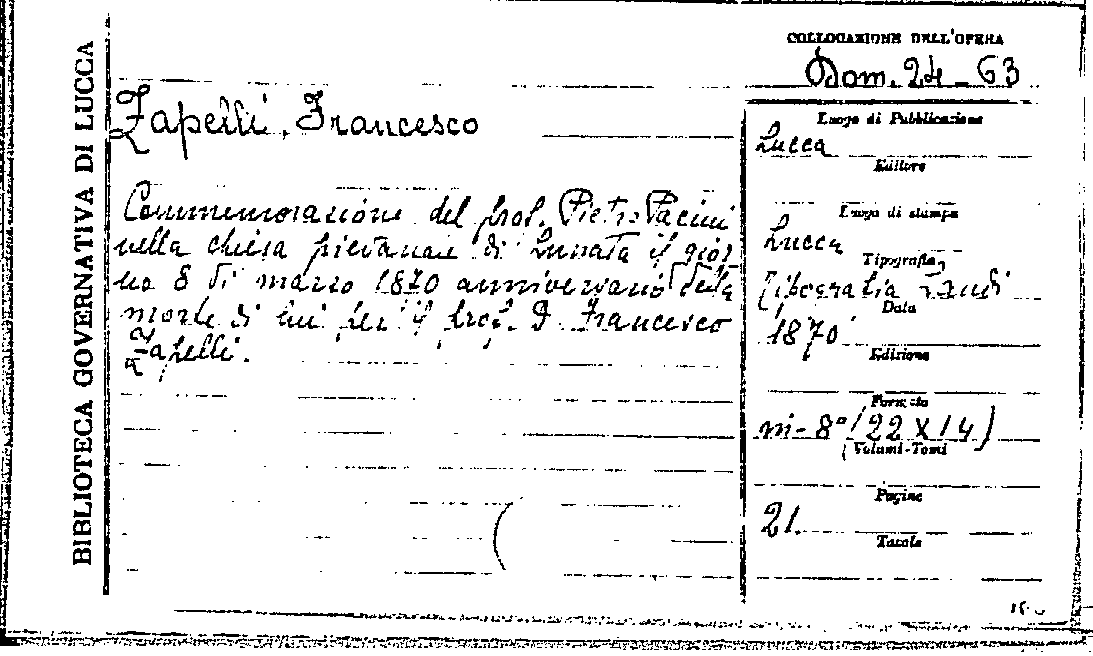 BIBLIOTECA GOVERNATIVA DI LUCCA
COLLOCAZIONE DELL'OPERA
Dom. 24-63
Zapelli, Francesco
Commemorazione del prof. Pietro Pacini
nella chiesa pievanale di Lunata il gior-
no 8 di marzo 1870 anniversario della
morte di lui per il prof. D. Francesco
Zapelli.
Luogo di Pubblicazione
Lucca
Editore
Luogo di stampa
Lucca
Tipografia
Tipografia Landi
Data
1870
Edizione
Formato
in-8° (22 x 14)
Volumi-Tomi
Pagine
21.
Tavole